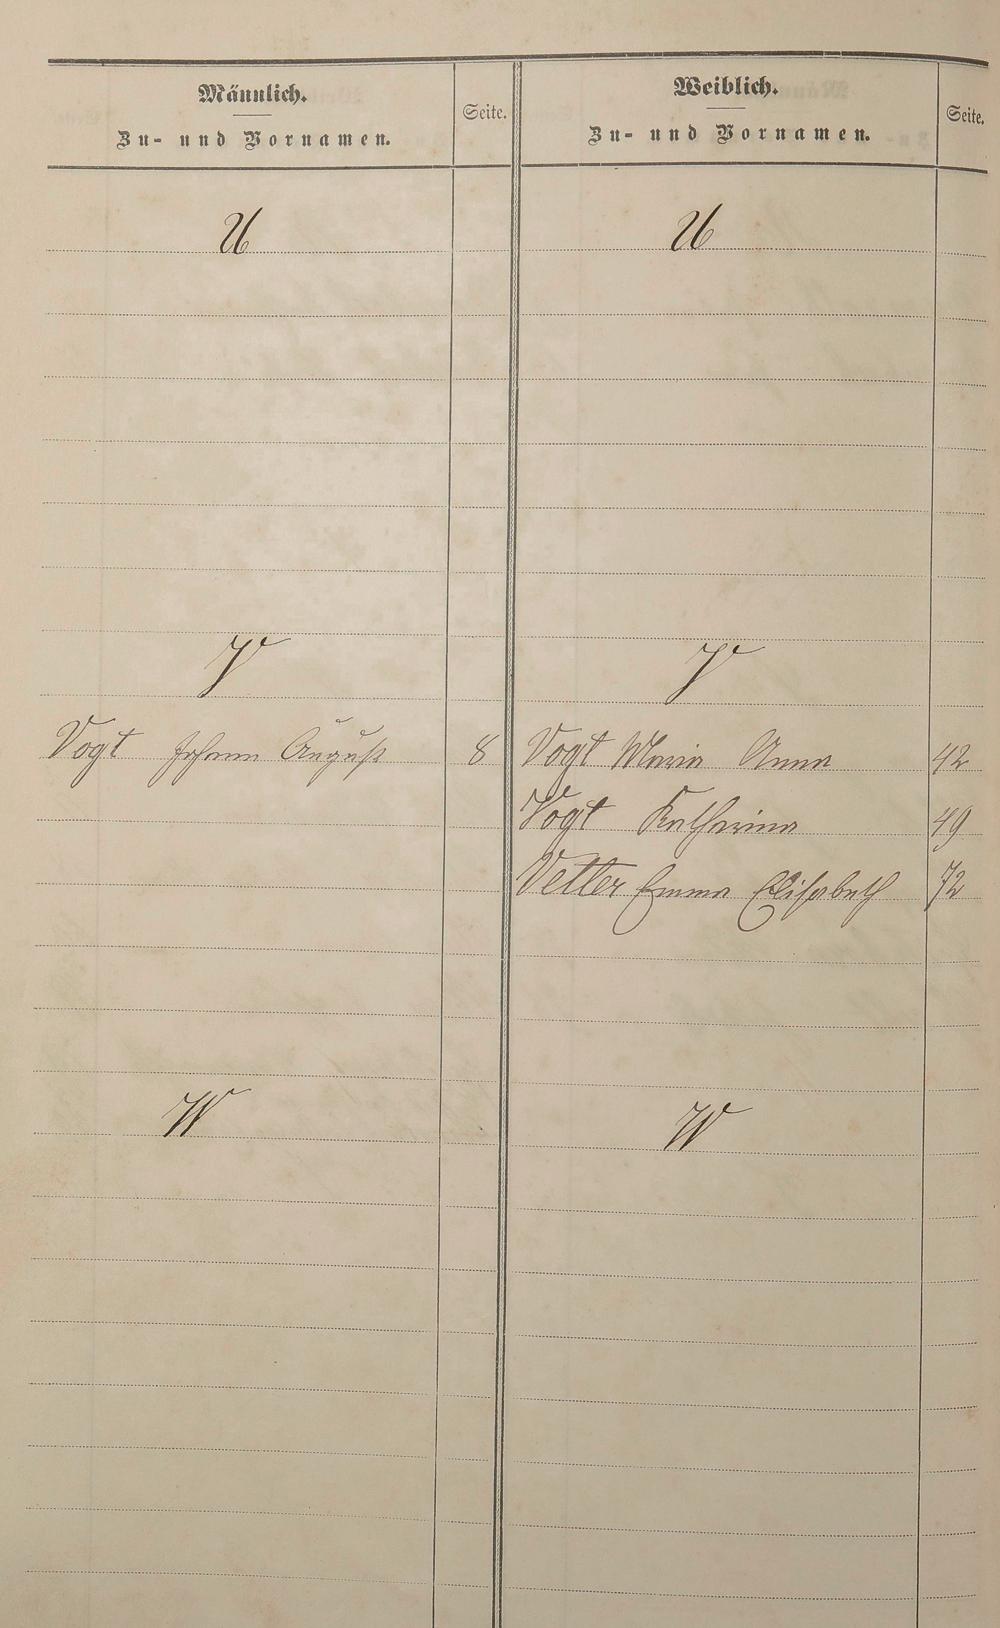 Männlich.
Zu- und Vornamen.
Seite.
Weiblich.
Zu- und Vornamen.
Seite.
U
U
V
V
Vogt Johann August 8
Vogt Maria Anna 42
Vogt Katharina 49
Vetter Emma Elisabeth 72
W
W